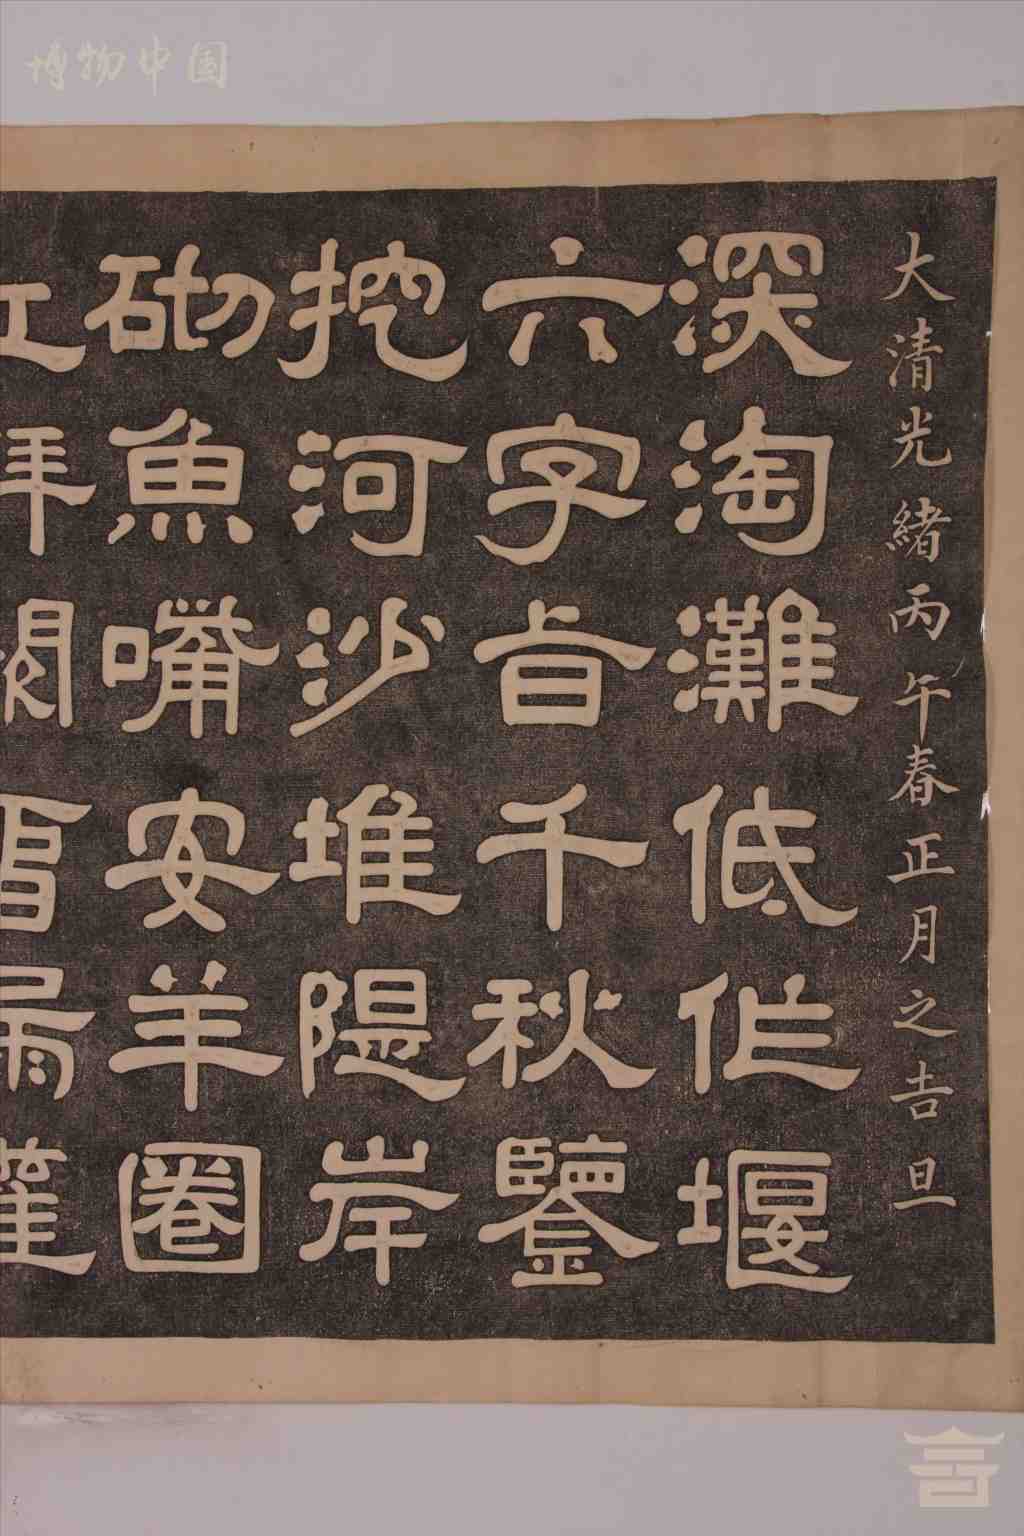 博物中国
大清光緒丙午春正月之吉旦
深淘灘低作堰
六字旨千秋鑒
挖河沙堆隄岸
砌魚嘴安羊圈